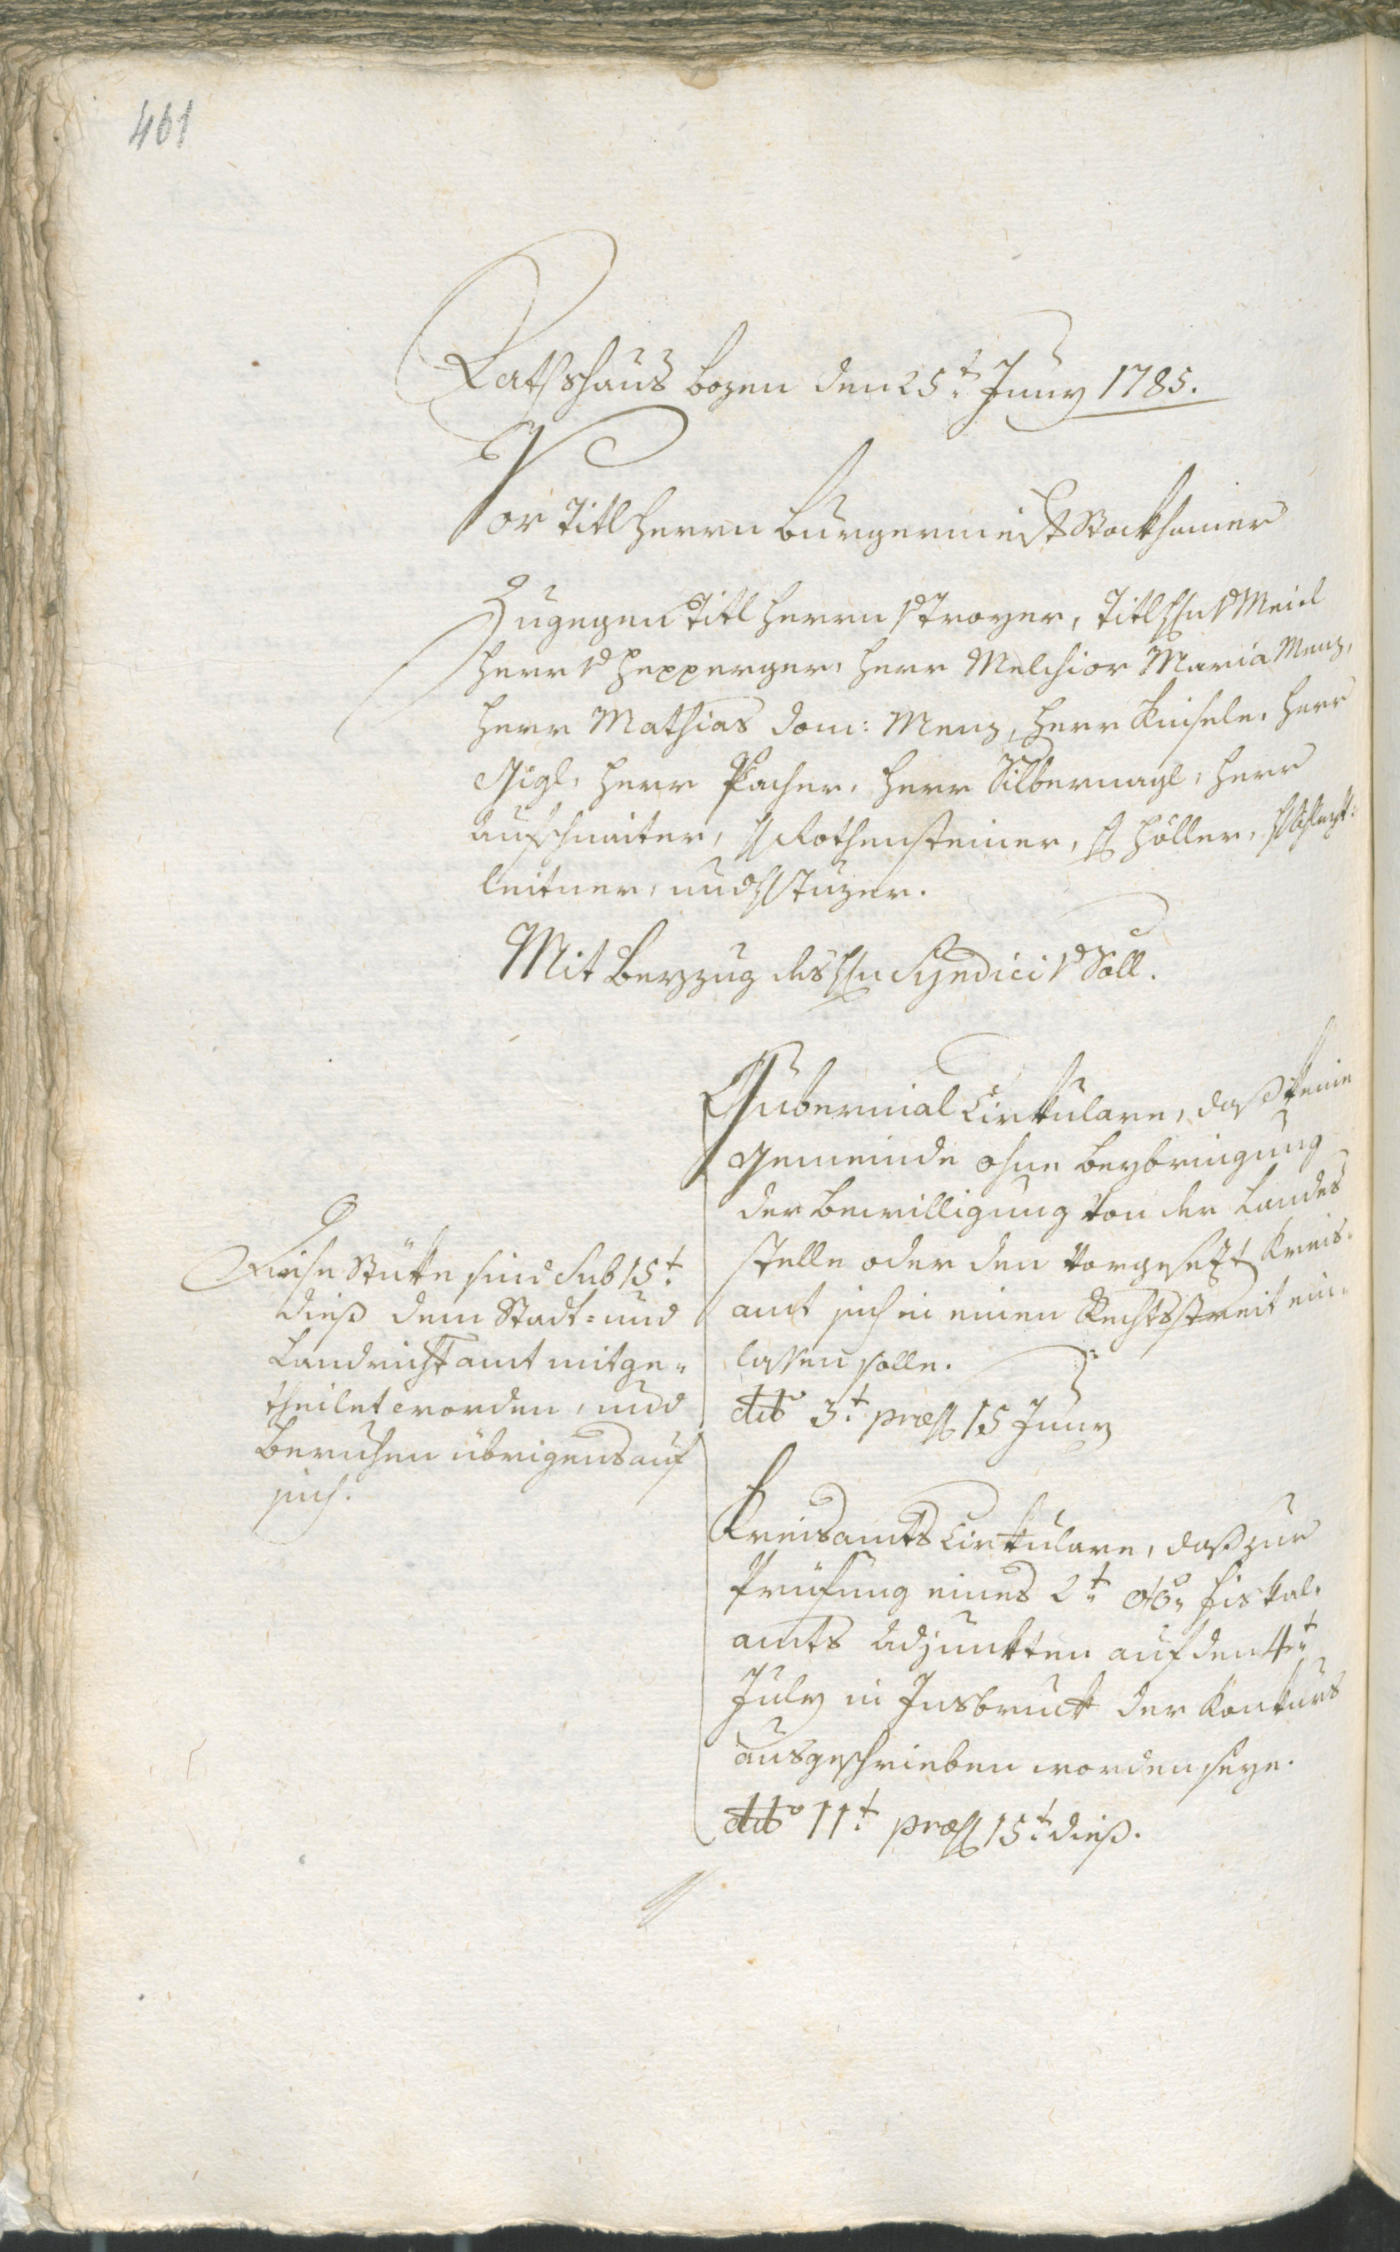 461
Rathshaus bozen den 25t. Juny 1785.
Vor Titl Herrn Burgermeist Stockhamer
Zugegen Titl Herrn v Troyer, Titl Hrn v Meiel
Herr v Hepperger, Herr Melchior Maria Menz,
Herr Mathias Dom: Menz, Herr Kinsele, Herr
Gigl, Herr Pacher, Herr Silbernagl, Herr
Aufschnaiter, H Rothensteiner, H Höller,
leitner, und H Stuzer.
Mit Beyzug des Hrn Syndici v Söll.
Gubernial Cirkulare, daß keine
Gemeinde ohne Beybringung
der Bewilligung von der Landes
stelle oder den vorgesezt Kreis-
amt sich in einen Rechtsstreit ein-
lassen solle.
ddto 3t. præs 15 Juny
Diese Stüke sind sub 15t.
dieß dem Stadt- und
Landrichtamt mitge-
theilet worden, und
beruhen übrigens auf
sich.
Kreisamts Cirkulare, daß zur
Prüfung eines 2t. Fiskal-
amts Adjunkten auf den 4t.
July in Insbruck der Konkurs
ausgeschrieben worden seye.
ddto 11t. præs 15t. dieß.